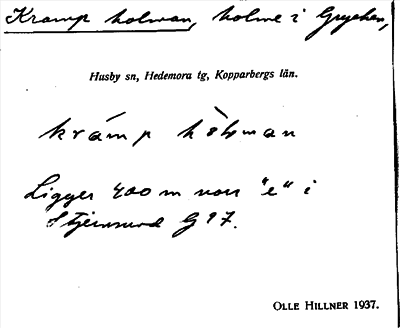 Kramp holman, holme i Grycken,
Husby sn, Hedemora tg, Kopparbergs län.
krámp hòlman
Ligger 400 m norr "e" i
Stjernsund G 97.
OLLE HILLNER 1937.